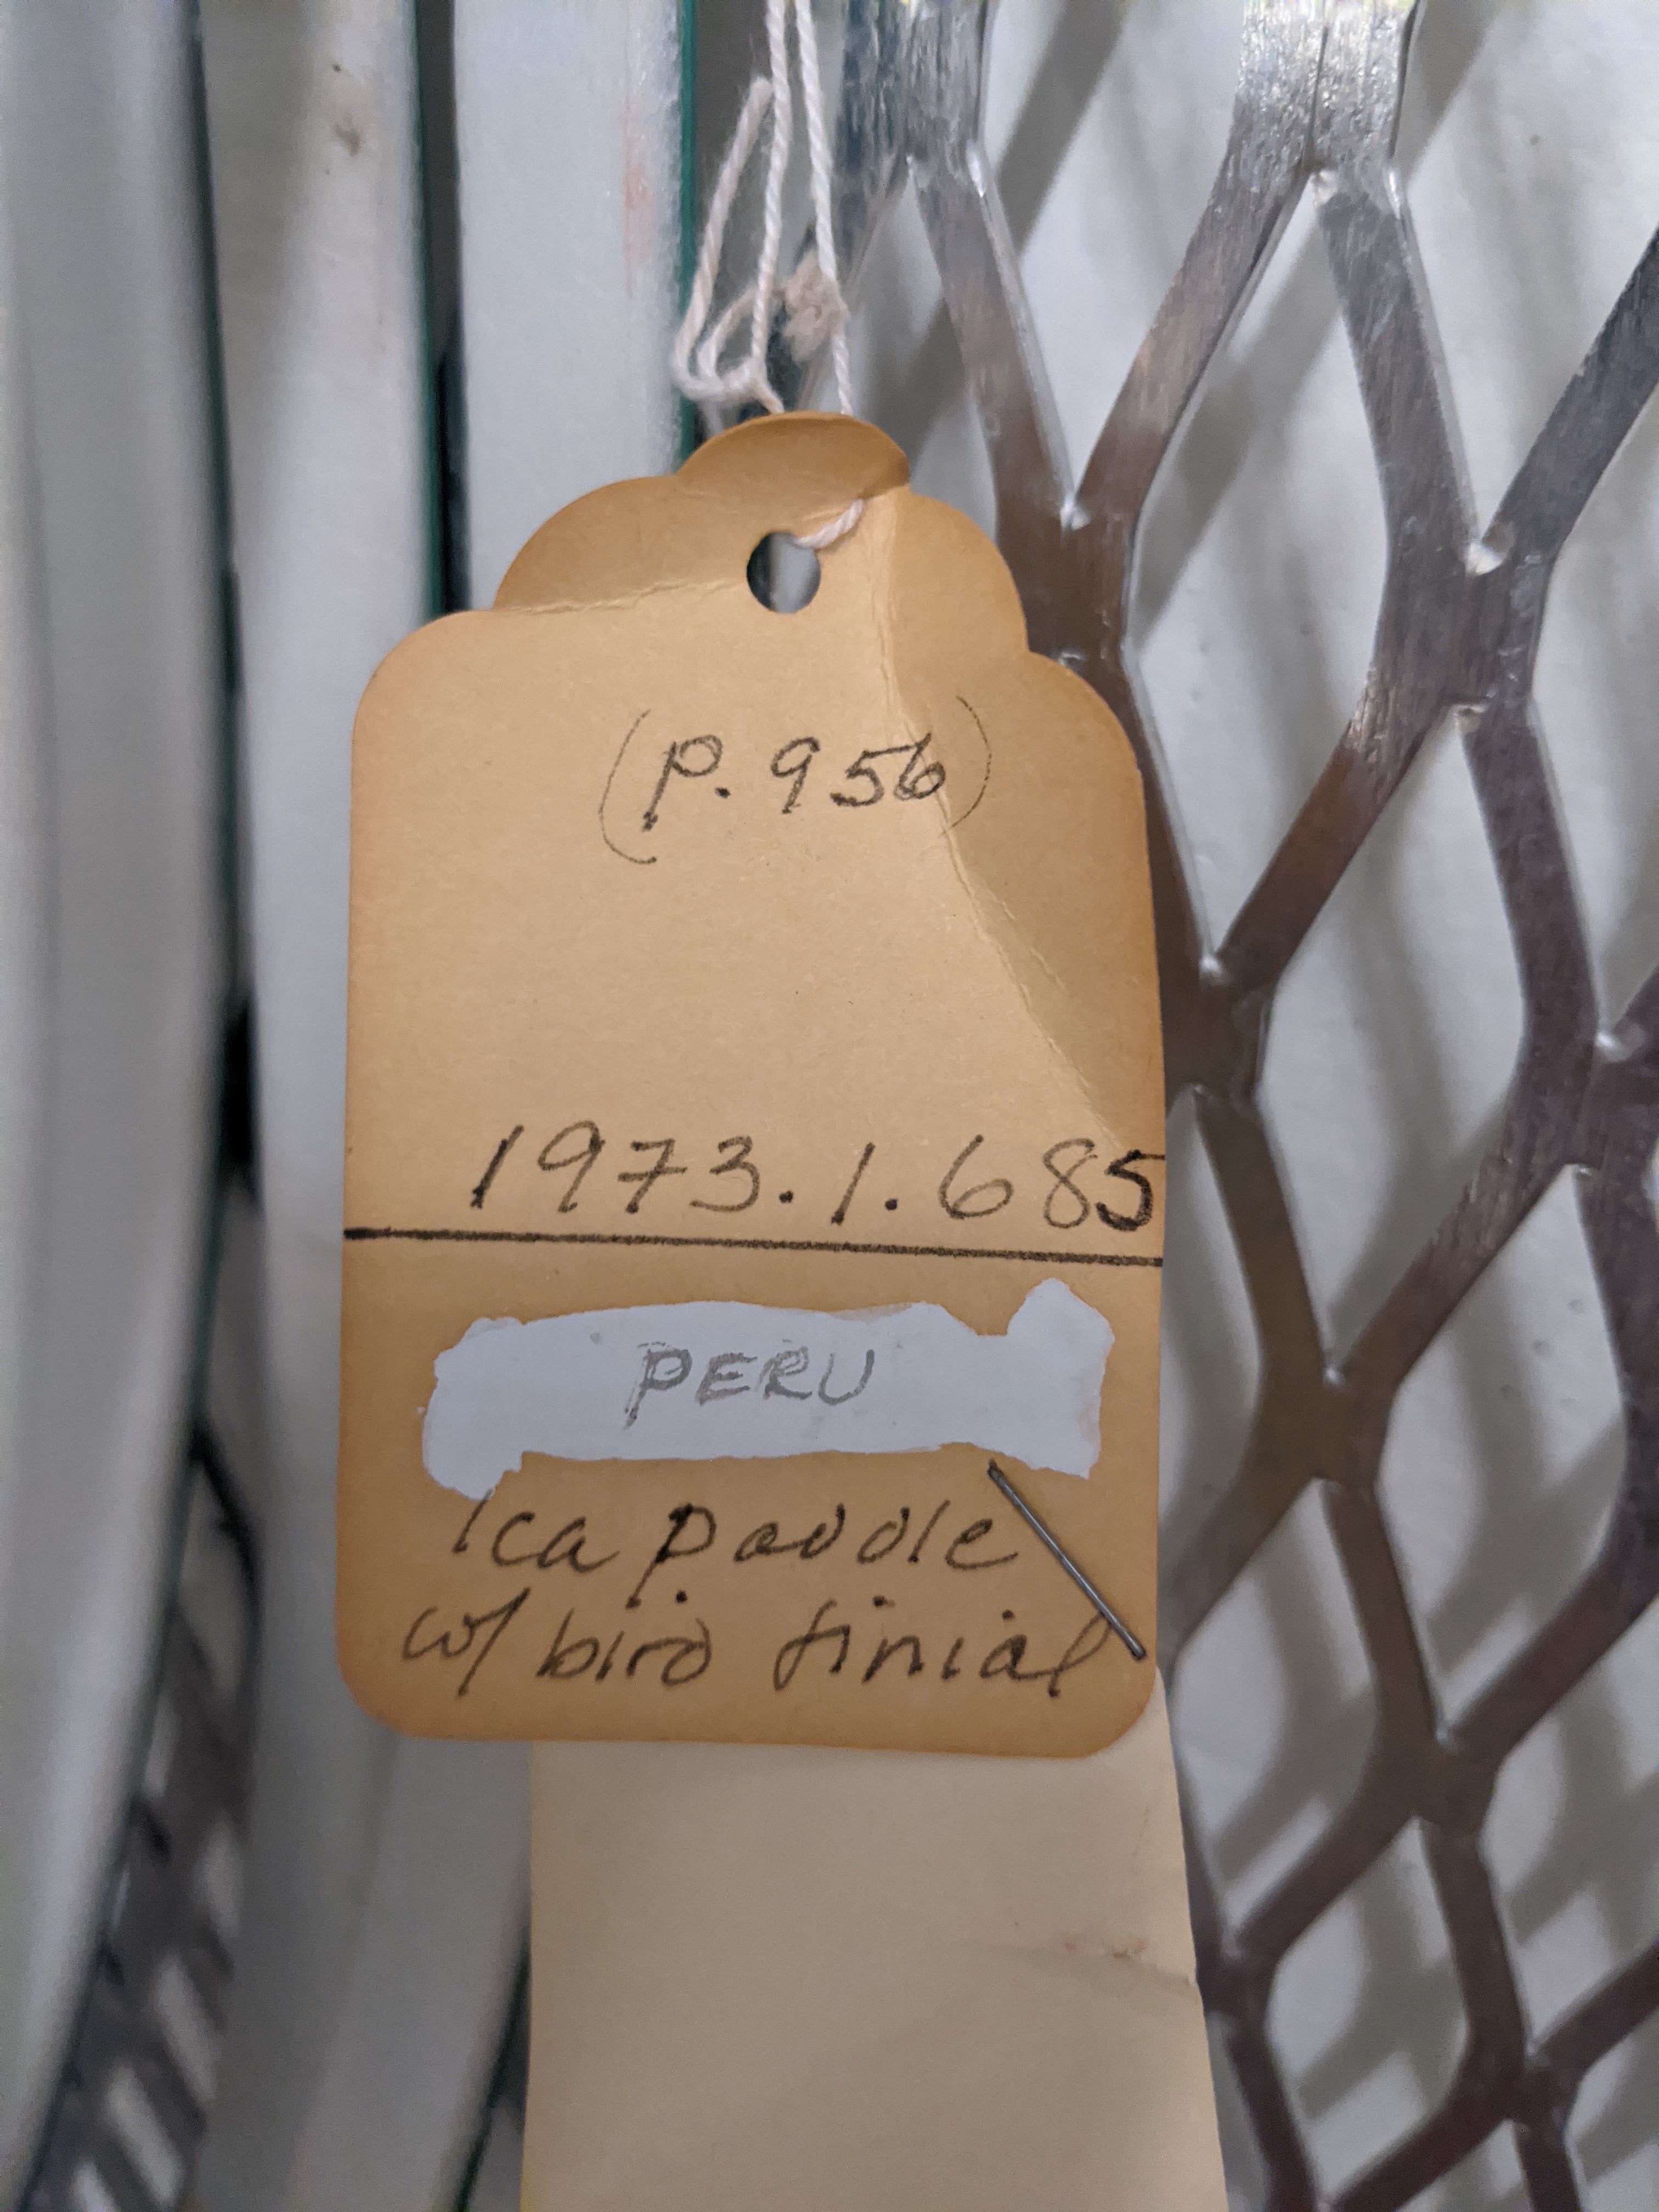 (P. 956)
1973.1.685
PERU
Ica paddle
w/ bird finial